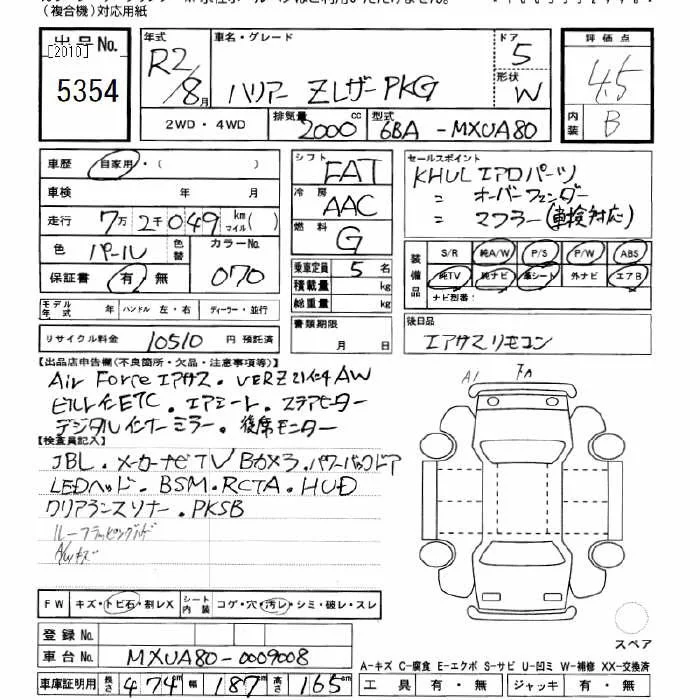 (複合機)対応用紙
出品No.
[2010]
5354
年式 R2/8月
車名・グレード
ハリアー ZレザーPKG
ドア 5
形状 W
評価点
4.5
内装 B
2WD・4WD
排気量 2000cc
型式 6BA-MXUA80
車歴 自家用・( )
車検 年 月
走行 7万2千049 km マイル( )
色 パール 色替 カラーNo. 070
保証書 有・無
シフト FAT
冷房 AAC
燃料 G
乗車定員 5名
積載量 kg
総重量 kg
セールスポイント
KHUL エアロパーツ
= オーバーフェンダー
= マフラー(車検対応)
装備品
S/R 純A/W P/S P/W ABS
純TV 純ナビ 革シート 外ナビ エアB
ナビ型番:
モデル年式 年 ハンドル 左・右 ディーラー・並行
書類期限 月 日
後日品
エアサスリモコン
リサイクル料金 10510 円 預託済
【出品店申告欄(不良箇所・欠品・注意事項等)】
Air Force エアサス・VERZ 21インチAW
ビルトインETC・エアシート・ステアヒーター
デジタルインナーミラー・後席モニター
【検査員記入】
JBL・メーカーナビTV Bカメラ・パワーバックドア
LEDヘッド・BSM・RCTA・HUD
クリアランスソナー・PKSB
ルーフラッピング
A/Wキズ
A1
FW キズ・トビ石・割レX シート内装 コゲ・穴・汚レ・シミ・破レ・スレ
登録No.
車台No. MXUA80-0009008
車庫証明用 長さ 474cm 幅 187cm 高さ 165cm
スペア
A-キズ C-腐食 E-エクボ S-サビ U-凹ミ W-補修 XX-交換済
工具 有・無 ジャッキ 有・無